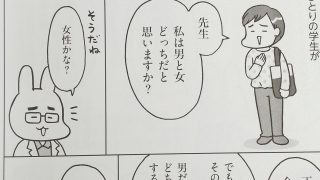 とりの学生が
先生
私は男と女
どっちだと
思いますか？
そうだね
女性かな？
でも
その
男だ
どち
する